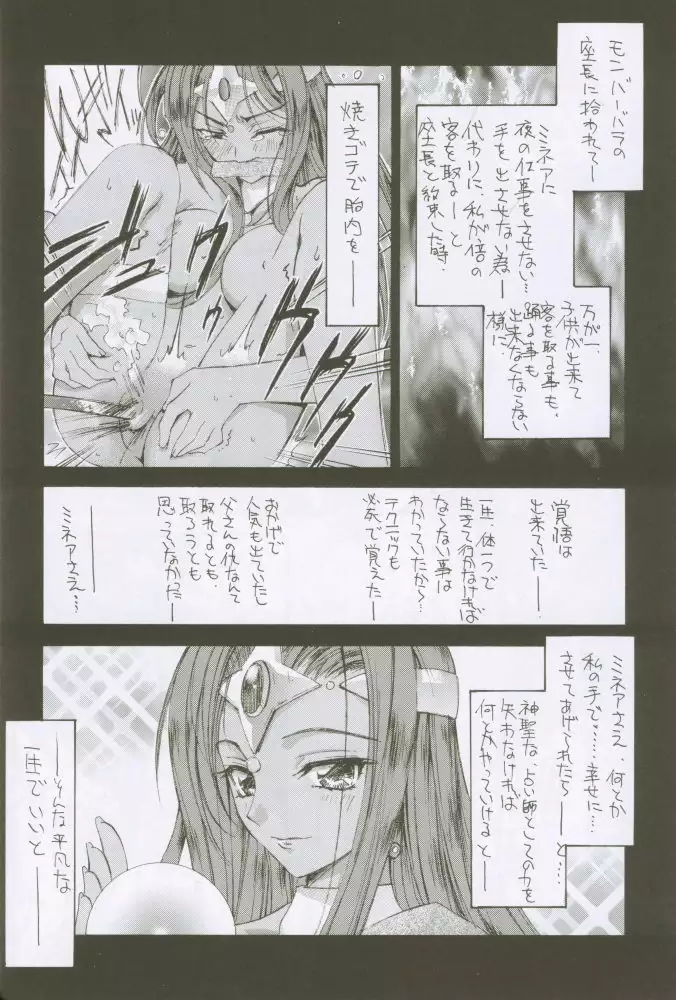 モンバーバラの
座長に拾われて―
ミネアに
夜の仕事をさせない…
手を出させない為―
代わりに、私が倍の
客を取る― と
座長と約束した時.
万が一、
子供が出来て
客を取る事も、
踊る事も
出来なくならない
様に.
焼きゴテで胎内を――
覚悟は
出来ていた―.
一生、体一つで
生きて行かなければ
ならない事は
わかっていたから…
テクニックも
必死で覚えた―
おかげで
人気も出ていたし
父さんの仇なんて
取れるとも、
取ろうとも
思っていなかった―
――
ミネアさえ…
ミネアさえ、何とか
私の手で……幸せに…
させてあげられたら― と…
神聖な、占い師としての力を
失わなければ
何とかやっていけると―
――そんな平凡な
一生でいいと――